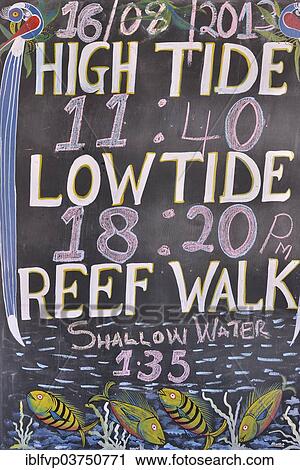 16/08/2013
HIGH TIDE
11:40
LOW TIDE
18:20 PM
REEF WALK
SHALLOW WATER
135
iblfvp03750771 www.fotosearch.com